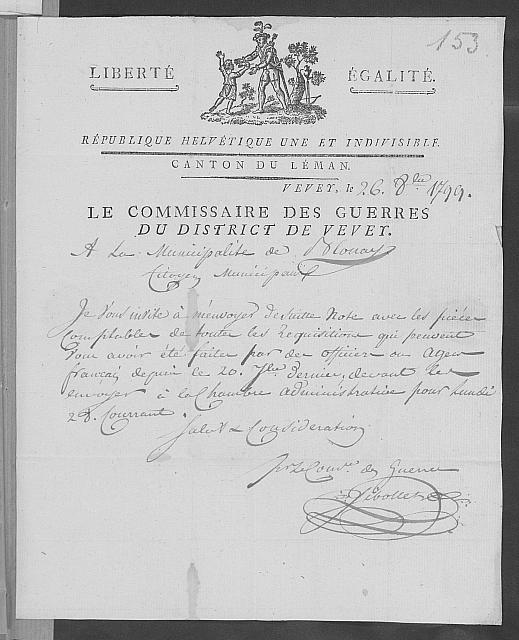 153
LIBERTÉ ÉGALITÉ.
RÉPUBLIQUE HELVÉTIQUE UNE ET INDIVISIBLE.
CANTON DU LÉMAN.
VEVEY, le 26. 8bre 1799.
LE COMMISSAIRE DES GUERRES
DU DISTRICT DE VEVEY.
A La Municipalité de Blonay
Citoyens Municipaux
Je Vous invite à m'envoyer desuitte Note avec les pièces
Comptables de toutes les Requisitions qui peuvent
Vous avoir été faites par des officiers ou Agens
francais depuis le 20. 7bre dernier, devant les
envoyer à la Chambre administrative pour Lundi
28. Courrant.
Salut & Consideration
pr Le Comre des Guerres